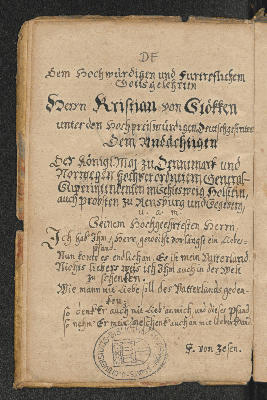 Dem Hochwürdigen und Fürtreflichem
Gottsgelehrten
Herrn Kristian von Stökken
unter den Hochpreiswürdigen Deutschgesinneten
Dem Andächtigen
Der Königl. Maj. zu Dennemark und
Norwegen hochverordnetem General-
Superintendenten in Schleswig Holstein,
auch probsten zu Rensburg und Segeberg,
u. a. m.
Seinem Hochgeehrtesten Herrn.
Ich hab' Ihm, Herr, geweiht vorlängst ein Liebes-
pfand.
Nun komt es endlich an. Es ist mein Vaterland.
Nichts liebers weis ich Ihm auch in der Welt
zu schenken.
Wie man mit Liebe soll des Vaterlands geden-
ken;
so denk' Er auch mit Lieb' an mich und dieses Pfand
so nehm' Er mein geschenk auch an mit Lieber Hand.
F. von Zesen.